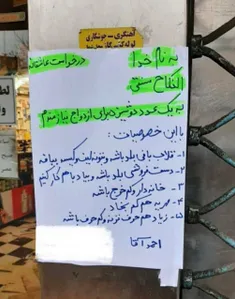 آهنگری - جوشکاری
به نام خدا
درخواست عاشقی
النکاح سنتی
به یک عدد دوشیزه برای ازدواج نیازمندم
با این خصوصیات:
۱- قلاب بافی بلد باشه و بتونه لیف و کیسه ببافه
۲- دست فروشی بلد باشه و بیاد با هم کار کنیم
۳- خانه دار و کم خرج باشه
۴- مهریه هم کم بخواد
۵- زیاد هم حرف نزنه و کم حرف باشه
احمد آقا
لطفا